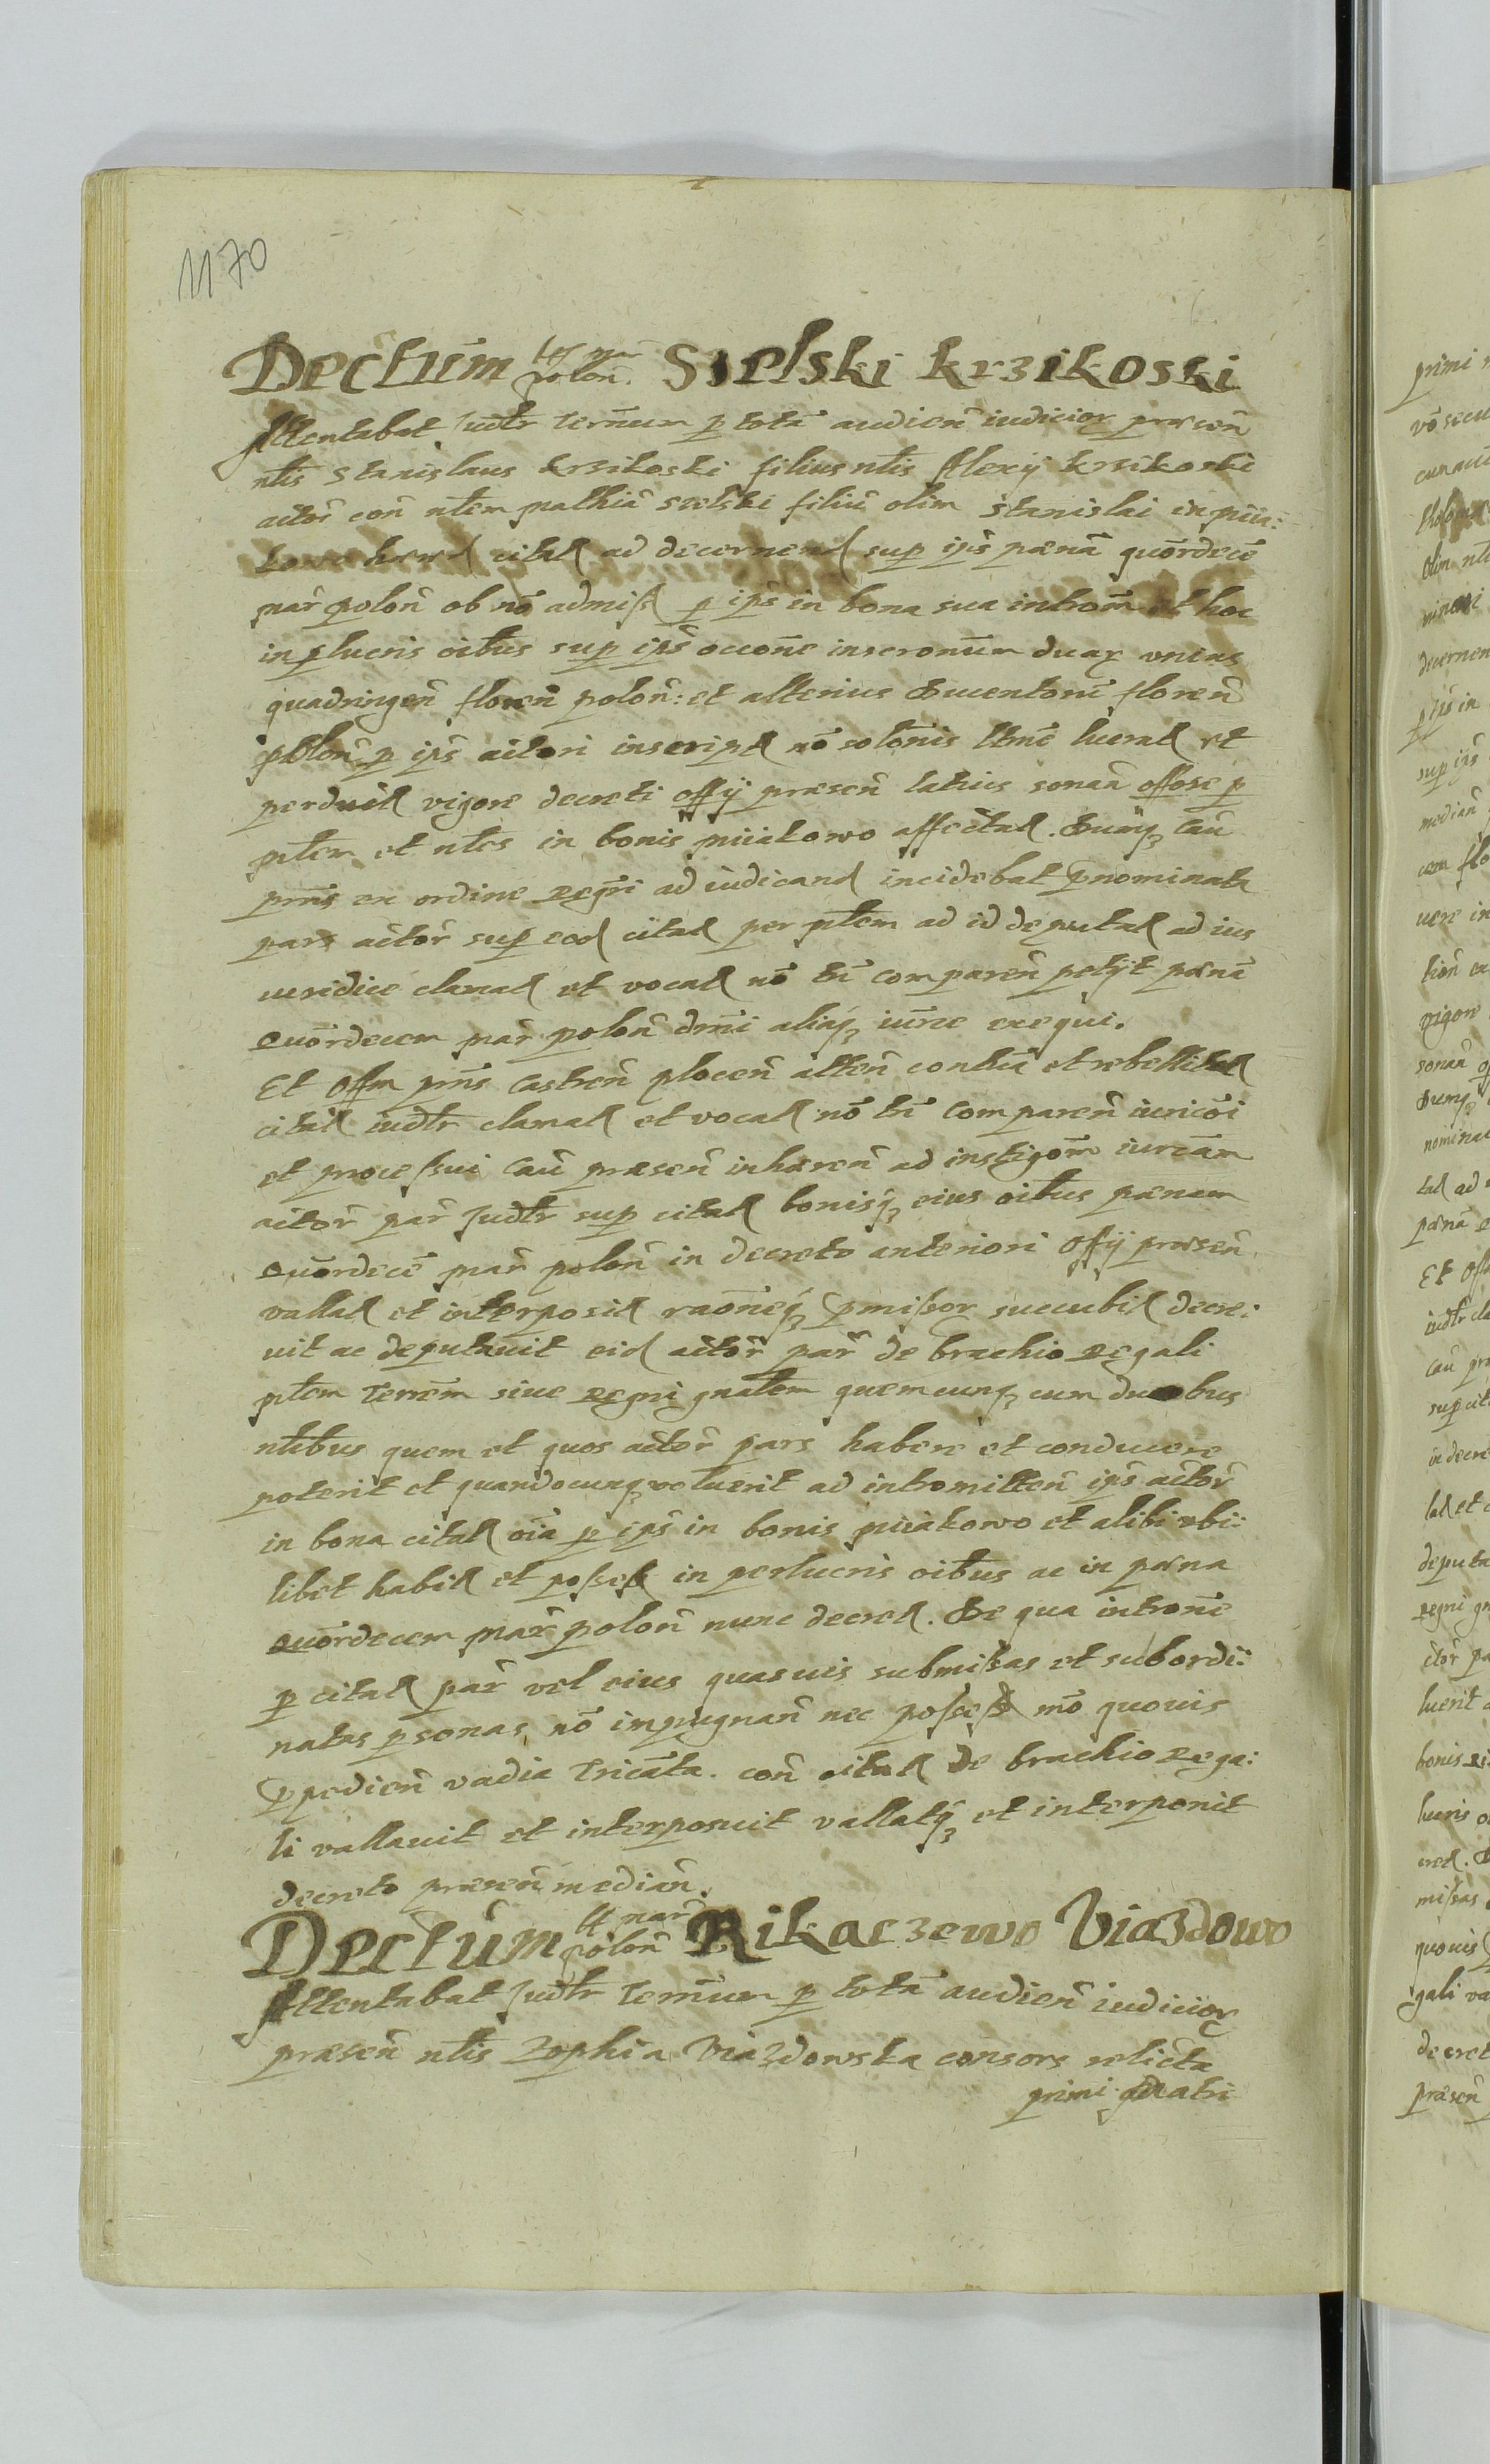 1170
Dectum polon̄ Sielski krzikoski
Attentabat Judtr Termum p totā audien̄ iudicior praesen̄
nlis Stanislaus krsikoski filius nlis Alexij krsikoski
actor̄ con̄ nlem mathiā sielski filiū olim Stanislai in miia:
kowo haered citat ad decernend sup ip̄s paenā quordecē
mar̄ polon̄ ob nō admiss p ip̄s in bona sua introm̄ et hoc
in plucris oibus sup ip̄s occone inscronum duar̄ vnius
quadringen̄ floren̄ polon̄: et alterius Ducentorū floren̄
polon̄ p ip̄s actori inscript nō solōnis ltme lucrat et
perduct vigore decreti offij praesen̄ latius sonan̄ offose p
mlem et nles in bonis miiakowo affectat. Dumq̨ cau
pn̄s ex ordine regri ad iudicand incidebat pnominata
pars actor̄ sup eod citat per mlem ad id deputat ad ius
iuridice clamat et vocat nō tn̄ comparen̄ petijt paenā
quordecem mar̄ polon̄ dmi aliaq̨ iurce exequi.
Et Offm pn̄s Castren̄ plocen̄ atten̄ contūa et rebellit
citat iudtr clamat et vocat nō tn̄ comparen̄ iuricōi
et processui cau praesen̄ inhaeren̄ ad instigom̄ iurcām
actor̄ par̄ Judtr sup citat bonisq̨ eius oibus paenam
quordecē mar̄ polon̄ in decreto anteriori Offij praesen̄
vallat et interposit raoneq̨ pmissor succubit decre:
uit ac deputauit eid actor̄ par̄ de brachio regali
mlem Terrem siue regni gnalem quemcunq̨ cum duobus
nlibus quem et quos actor̄ pars habere et conducere
poterit et quandocunq̨ voluerit ad intromitten̄ ip̄s actor̄
in bona citat oīa p ip̄s in bonis miiakowo et alibi vbi:
libet habit et possess in perlucris oibus ac in paena
quordecem mar̄ polon̄ nunc decret. De qua introne
p citat par̄ vel eius quasuis submissas et subordi:
natas psonas nō impugnan̄ nec possess mō quouis
expedien̄ vadia Tricata. con̄ citat de brachio rega:
li vallauit et interposuit vallatq̨ et interponit
decreto praesen̄ median̄.
Dectum 14 mar̄ polon̄ Rikaczewo Viazdowo
Attentabat Judtr Termum p totā audien̄ iudicior
praesen̄ nlis Zophia Viazdowska consors relicta
primi matri